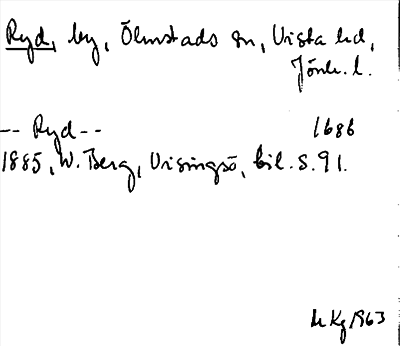 Ryd, by, Ölmstads sn, Vista hd,
Jönk. l.
-- Ryd -- 1686
1885, W. Berg, Visingsö, bil. S. 91.
Kg 1963